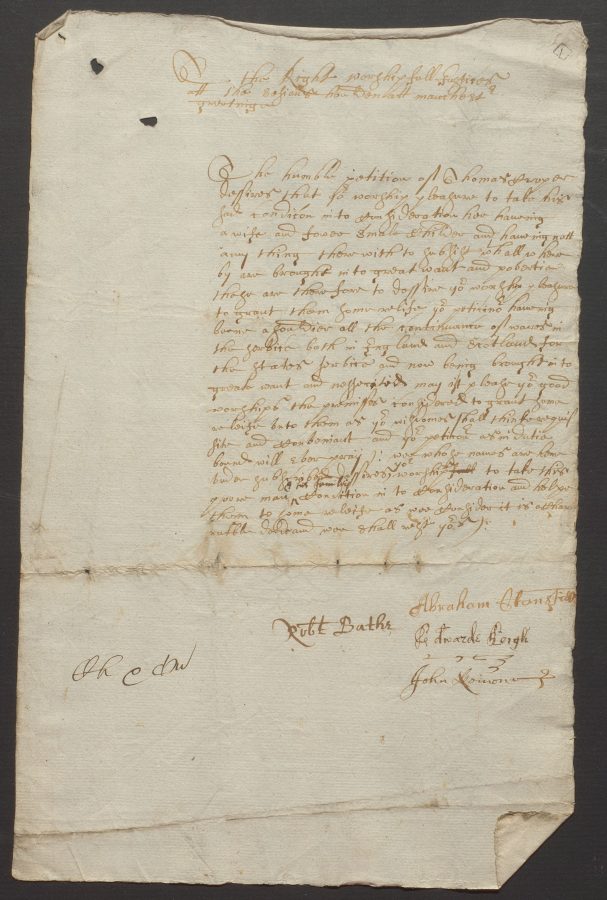 To the Right worshipfull Justices
att the Sesions houlden att manchestr
greetinge
The humble petition of Thomas
desires that yor worship pleasure to take his
condition in to Consideration hee haveing
a wife and fower Smale Childer and haveing nott
any thing there with to subsist whall where
by are brought in to great want and povertie
these are there fore to dessire yor worship pleasure
to grant them some releife yor peticinr haveing
beene a souldier all the Continuance of wares in
the service both in England and Scotland for
the States service and now being brought in to
great want and nessecitie may itt please yor good
worships the premisses considered to grant some
releife unto them as yor wisdomes shall thinke requi
site and Conveniant and yor petitionr as in dutie
bound will Ever pray wee whose names are here
under subscribed dessires yor worships to take this
poore man & his familie Condition in to Consideration and helpe
them to some releife as wee Consider it is a
rable deed and wee shall rest yors
Abraham
Robt Bathe
Edwarde Leigh
John